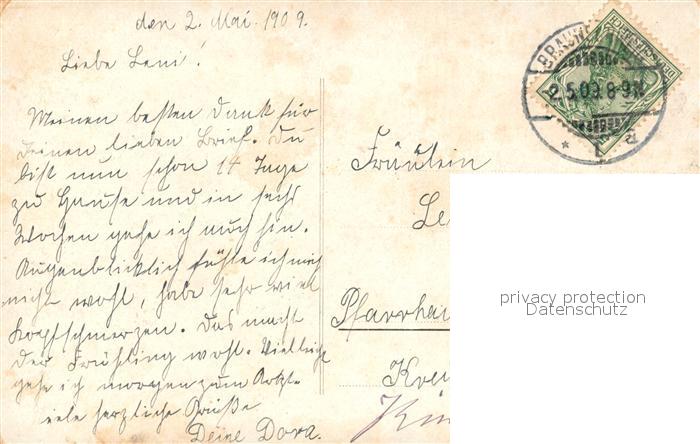 den 2. Mai. 1909.
Liebe Leni!
Meinen besten Dank für
Deinen lieben Brief. Du
bist nun schon 14 Tage
zu Hause und in sechs
Wochen gehe ich auch hin.
Augenblicklich fühle ich mich
nicht wohl, habe sehr viel
Kopfschmerzen. Das macht
der Frühling wohl. Vielleicht
gehe ich morgen zum Arzt.
viele herzliche Grüße
Deine Dora.
BRAUN
2.5.09.8-9N.
Fräulein
Le
Pfarrha
Kre
privacy protection
Datenschutz